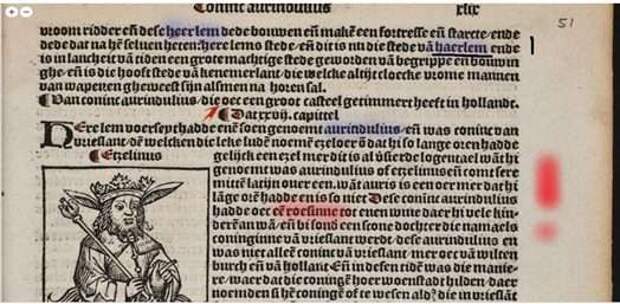 Coninc aurindulius xlix
51
vroom ridder eñ dese heerlem dede bouwen eñ makẽ een fortresse eñ starcte/ende
dede dat na hẽ seluen heten:here lems stede/eñ dit is nu die stede vã haerlem ende
is in lancheit vã tiden een grote machtige stede geworden vã begrippe eñ bouwin
ghe/eñ is die hooft stede vã kenemerlant/die welcke altijt cloecke vrome mannen
van wapenen gheweest sijn alsmen na horen sal.
¶Van coninc aurindulius/die oec een groot casteel getimmert heeft in hollandt.
¶Dat xvij. capittel
HEre lem voerseyt hadde enẽ soen genoemt aurindulius/eñ was coninc van
vrieslant/dẽ welcken die leke ludẽ noemẽ ezeloer/õ dat hi so lange oren hadde
¶Etzelinus
gelijck een ezel mer dit is al vsierde logentael wãt hi
genoemt was aurindulius of etzelinus eñ comt sere
mittẽ latijn ouer een. wãt auris is een oer mer dat hi
lãge orẽ hadde en is so niet Dese coninc aurindulius
hadde oec eẽ roesinne tot enen wiue daer hi vele kin-
derẽ an wã/eñ bisond een scone dochter die namaels
coninginne vã vrieslant werdt/ dese aurindulius en
was niet alleẽ coninc vã vrieslant/mer oec vã wilten
burch eñ vã hollant Eñ in desen tidẽ was die manie-
re/waer dat die coningẽ hoer woenstadt hilden/ daer
noemden si hẽ coningẽ of te wesen alsꝰ die in vrieslãt